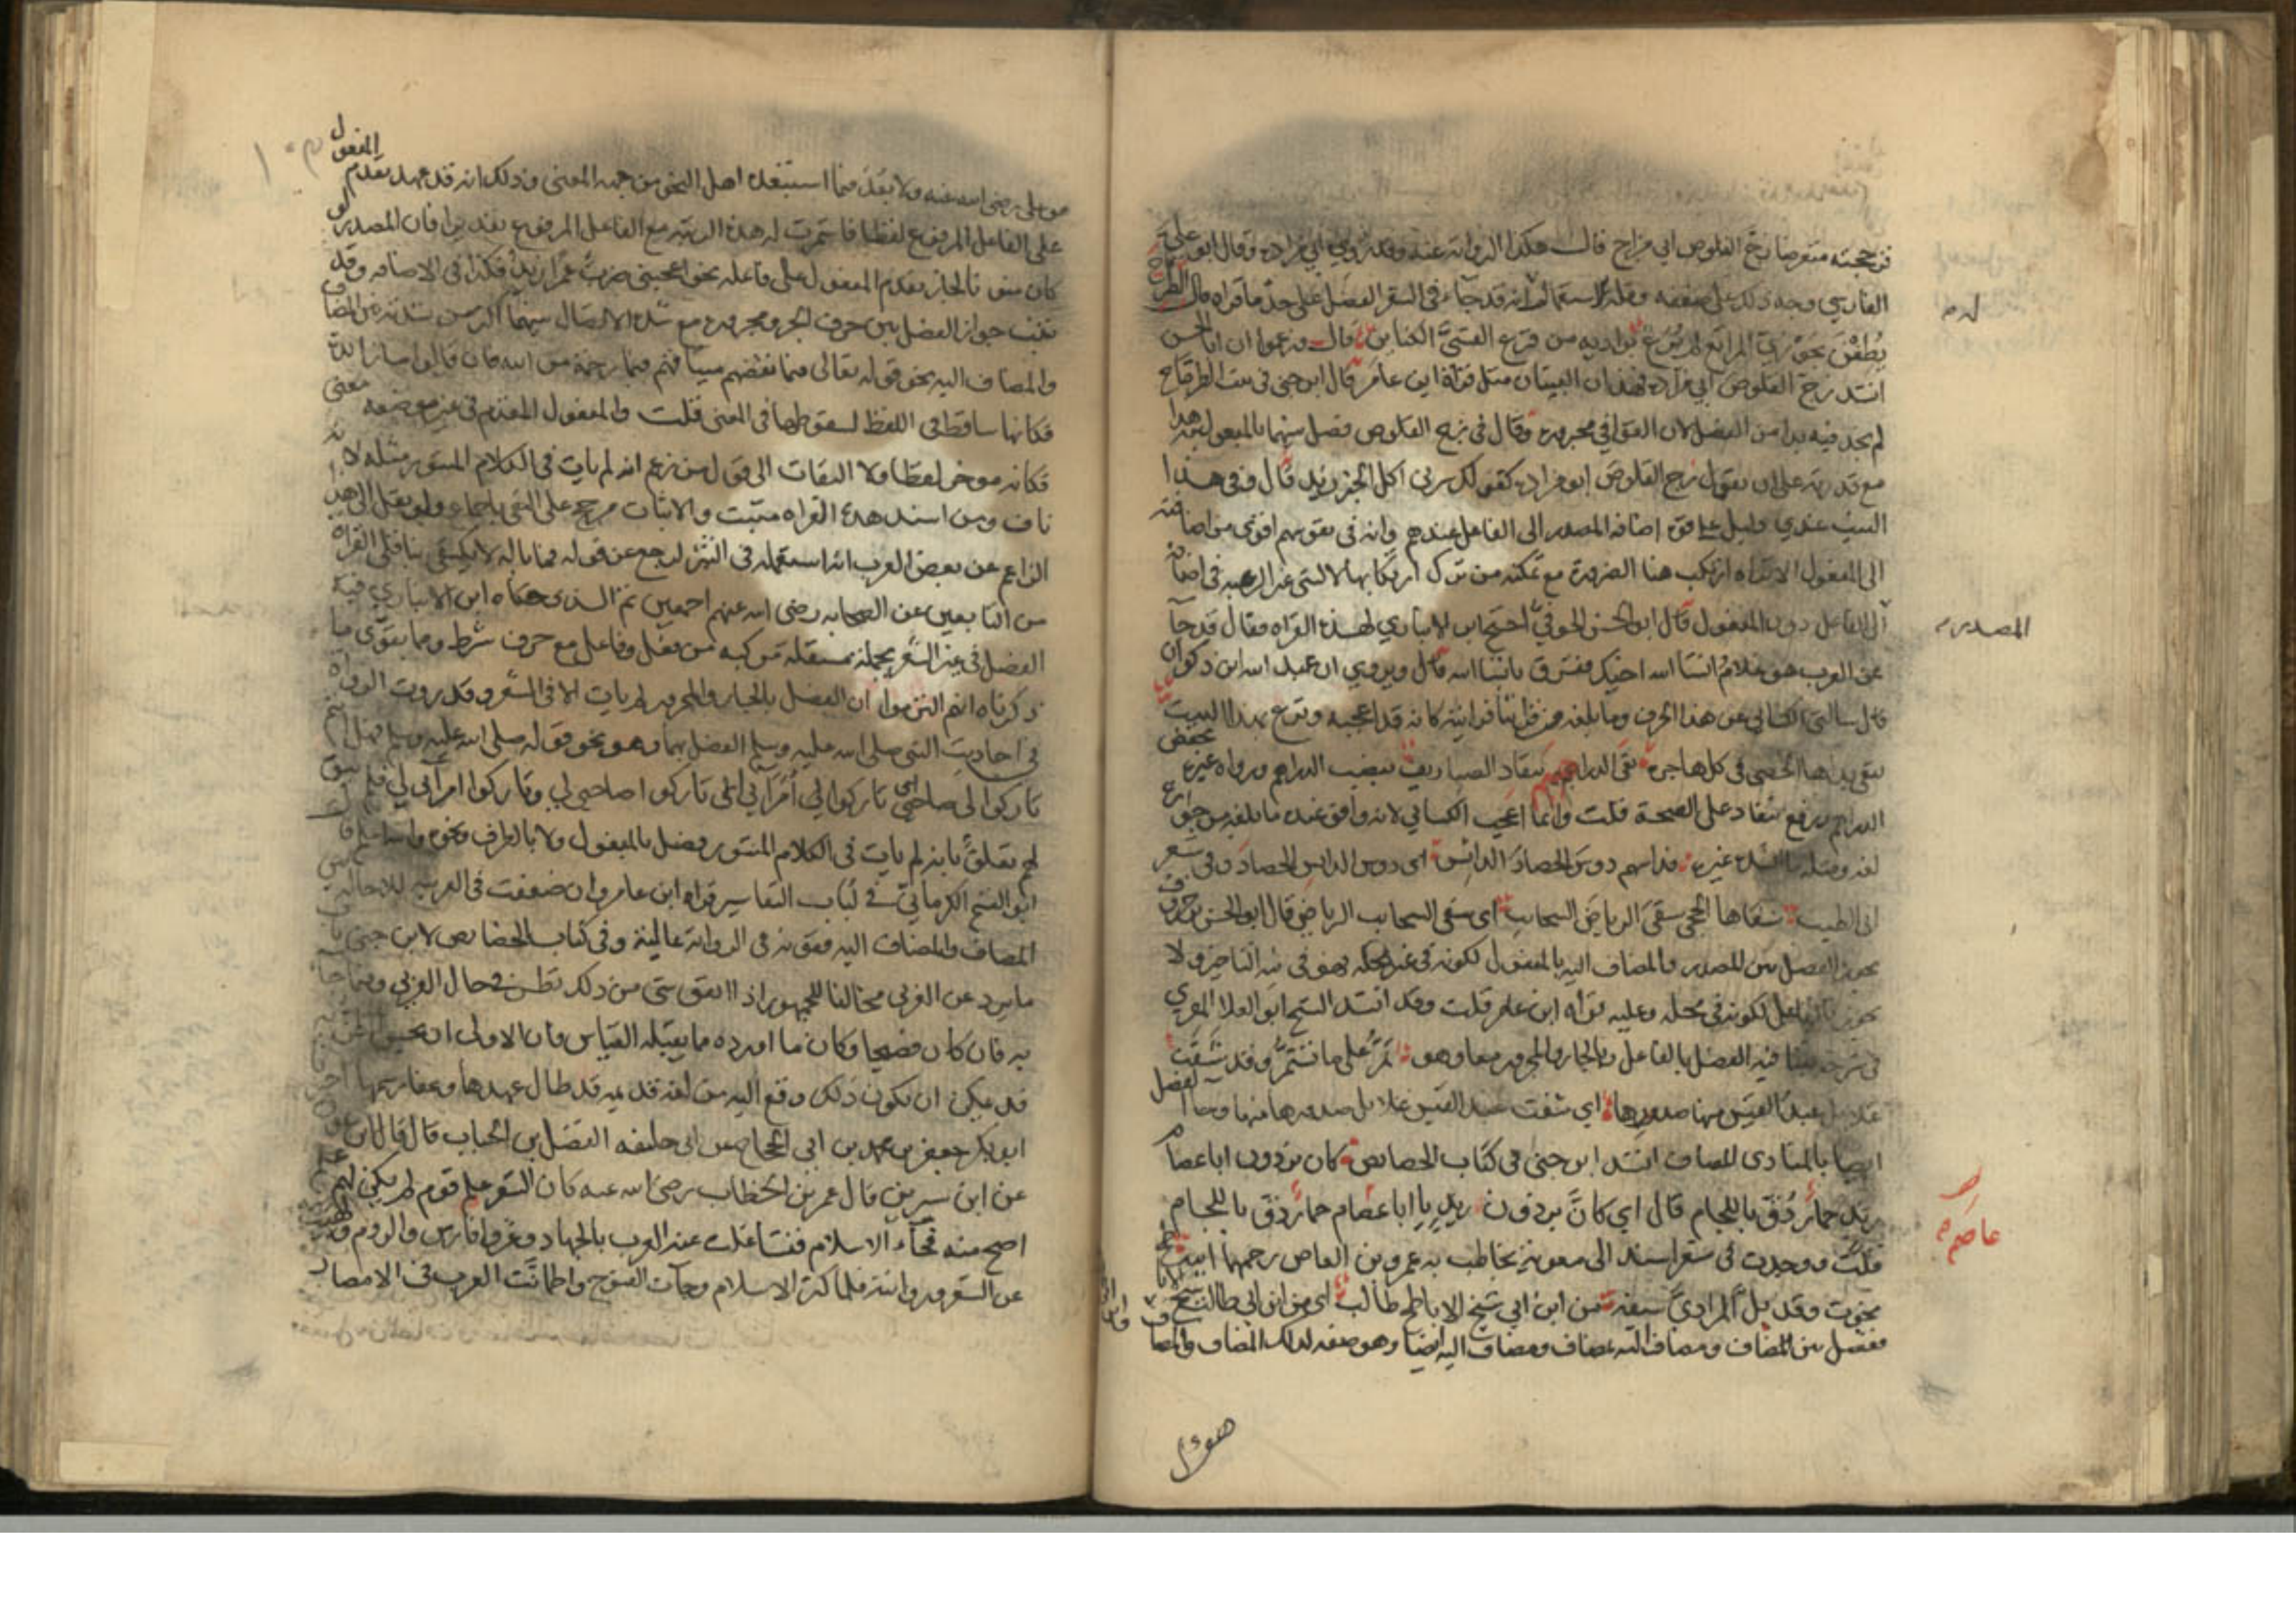 فزججته متعرضا زج القلوص ابي مزاده قال هكذا الرواية عنه وقد روي ابي مزاده وقال ابو علي
الفارسي وجه ذلك على ضعفه وقلة الاستعمال انه قد جاء في الشعر الفصل على حد ما قراه قال الطرماح
يطفن بحوزي المراتع لم ترع بواديه من قرع القسي الكنائن قال وزعموا ان ابا الحسن
انشد زج القلوص ابي مزاده فهذان البيتان مثل قراة ابن عامر قال ابن جني في بيت الطرماح
لم يجد فيه بدا من الفصل لان القوافي مجرورة وقال في زج القلوص فصل بينهما بالمفعول به هذا
مع قدرته على ان يقول زج القلوص ابو مزاده كقولك سرني اكل الخبز زيد قال وفي هذا
البيت عندي دليل على قوة اضافة المصدر الى الفاعل عندهم وانه في نفوسهم اقوى من اضافته
الى المفعول الا تراه ارتكب هنا الضرورة مع تمكنه من ترك ارتكابها لا لشي غير الرغبة في اضافته
الى الفاعل دون المفعول قال ابو الحسن الحوفي احتج ابن الانباري لهذه القراه فقال قد جا
عن العرب هو غلام ان شا الله اخيك ففرق بان شا الله قال ويروي ان عبد الله ابن ذكوان
قال سالني الكسائي عن هذا الحرف وما بلغه من قراتنا فرايته كانه قد اعجبه ونزع بهذا البيت
تنفي يداها الحصى في كل هاجرة نفي الدراهم تنقاد الصياريف بنصب الدراهم ورواه غيره بخفض
الدراهم ورفع تنقاد على الصحة قلت وانما اعجب الكسائي لانه وافق عنده ما بلغه من جوازه
لغة ومثله ما انشده غيره فداسهم دوس الحصاد الدائس اي دوس الدائس الحصاد وفي شعر
ابي الطيب سقاها الحجى سقي الرياض السحايب اي سقي السحايب الرياض قال ابو الحسن بن خروف
يجوز الفصل بين المصدر والمضاف اليه بالمفعول لكونه في غير محله فهو في نية التاخير ولا
يجوز بالفاعل لكونه في محله وعليه قراه ابن عامر قلت وقد انشد الشيخ ابو العلا المعري
في شرحه بيتا فيه الفصل بالفاعل وبالجار والمجرور معا وهو تمر على ما تستمر وقد شفت
غلائل عبد القيس منها صدورها اي شفت عبد القيس غلائل صدورها منها وجا الفصل
ايضا بالمنادى المضاف انشد ابن جني في كتاب الخصائص كان برذون ابا عصام
زيد حمار دق باللجام قال اي كان برذون زيد يا ابا عصام حمار دق باللجام
قلت ووجدت في شعر اسند الى معوية يخاطب به عمرو بن العاص رحمهما الله
نجوت وقد بل المرادي سيفه من ابن ابي شيخ الاباطح طالب اي من ابن ابي طالب شيخ الاباطح
ففصل بين المضاف ومضاف اليه بمضاف ومضاف اليه ايضا وهو صفة لذلك المضاف والمضاف
المصدر
عاصم
هو
من علي رضي الله عنه ولا بعد فيما استبعده اهل النحو من جهة المعنى وذلك انه قد عهد تقدم المفعول
على الفاعل المرفوع لفظا فاستمرت له هذه الرتبة مع الفاعل المرفوع تقديرا فان المصدر لو
كان منونا لجاز تقدم المفعول على فاعله نحو اعجبني ضرب عمرا زيد فكذا في الاضافه وقد
ثبت جواز الفصل بين حرف الجر ومجروره مع شدة الاتصال بينهما اكثر من شدته بين المضاف
والمضاف اليه نحو قوله تعالى فبما نقضهم ميثاقهم فبما رحمة من الله فان قالوا ما زائدة
فكانها ساقطة في اللفظ لسقوطها في المعنى قلت والمفعول المقدم في غير موضعه معنى
فكانه موخر لفظا ولا التفات الى قول من زعم انه لم يات في الكلام المنثور مثله لانه
ناف ومن اسند هذه القراه مثبت والاثبات مرجح على النفي باجماع ولو نقل الى هذا
الزاعم عن بعض العرب انه استعمله في النثر لرجع عن قوله فما باله لا يكتفي بناقلي القراه
من التابعين عن الصحابه رضي الله عنهم اجمعين ثم الذي حكاه ابن الانباري فيه
الفصل في غير الشعر بجملة مستقلة مركبه من فعل وفاعل مع حرف شرط ومما يقوي ما
ذكرناه انهم التزموا ان الفصل بالجار والمجرور لم يات الا في الشعر وقد روت الرواه
في احاديث النبي صلى الله عليه وسلم الفصل بهما وهو نحو قوله صلى الله عليه وسلم فهل انتم
تاركوا لي صاحبي تاركوا لي امرائي اي تاركوا صاحبي لي وتاركوا امرائي لي فلم يبق
لهم تعلق بانه لم يات في الكلام المنثور فصل بالمفعول ولا بالظرف ونحوه والله اعلم قال
ابو الفتح الكرماني في لباب التفاسير قراه ابن عامر وان ضعفت في العربية للاحالة بين
المضاف والمضاف اليه فقوية في الرواية عالية وفي كتاب الخصائص لابن جني باب
ما يرد عن العربي مخالفا للجمهور اذا اتفق شي من ذلك نظر في حال العربي وفيما جا
به فان كان فصيحا وكان ما اورده مما يقبله القياس فان الاولى ان يحسن الظن به
قد يمكن ان يكون ذلك وقع اليه من لغة قديمة قد طال عهدها وعفا رسمها اخبرنا
ابو بكر جعفر بن محمد بن ابي الحجاج عن ابي خليفه الفضل بن الحباب قال قال ابن عون
عن ابن سيرين قال عمر بن الخطاب رضي الله عنه كان الشعر علم قوم لم يكن لهم علم
اصح منه فجاء الاسلام فتشاغلت عنه العرب بالجهاد وغزوا فارس والروم ولهيت
عن الشعر وروايته فلما كثر الاسلام وجات الفتوح واطمانت العرب في الامصار